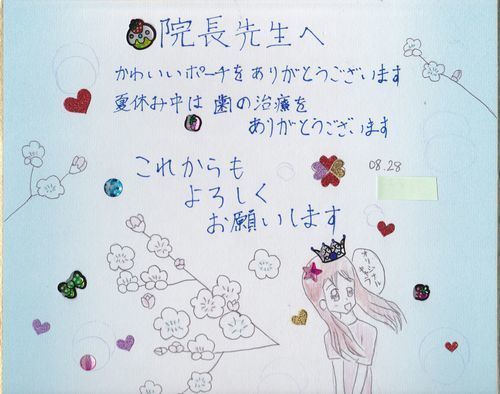 院長先生へ
かわいいポーチをありがとうございます
夏休み中は歯の治療を
ありがとうございます
これからも
よろしく
お願いします
08.28
オリジナル
キャラ